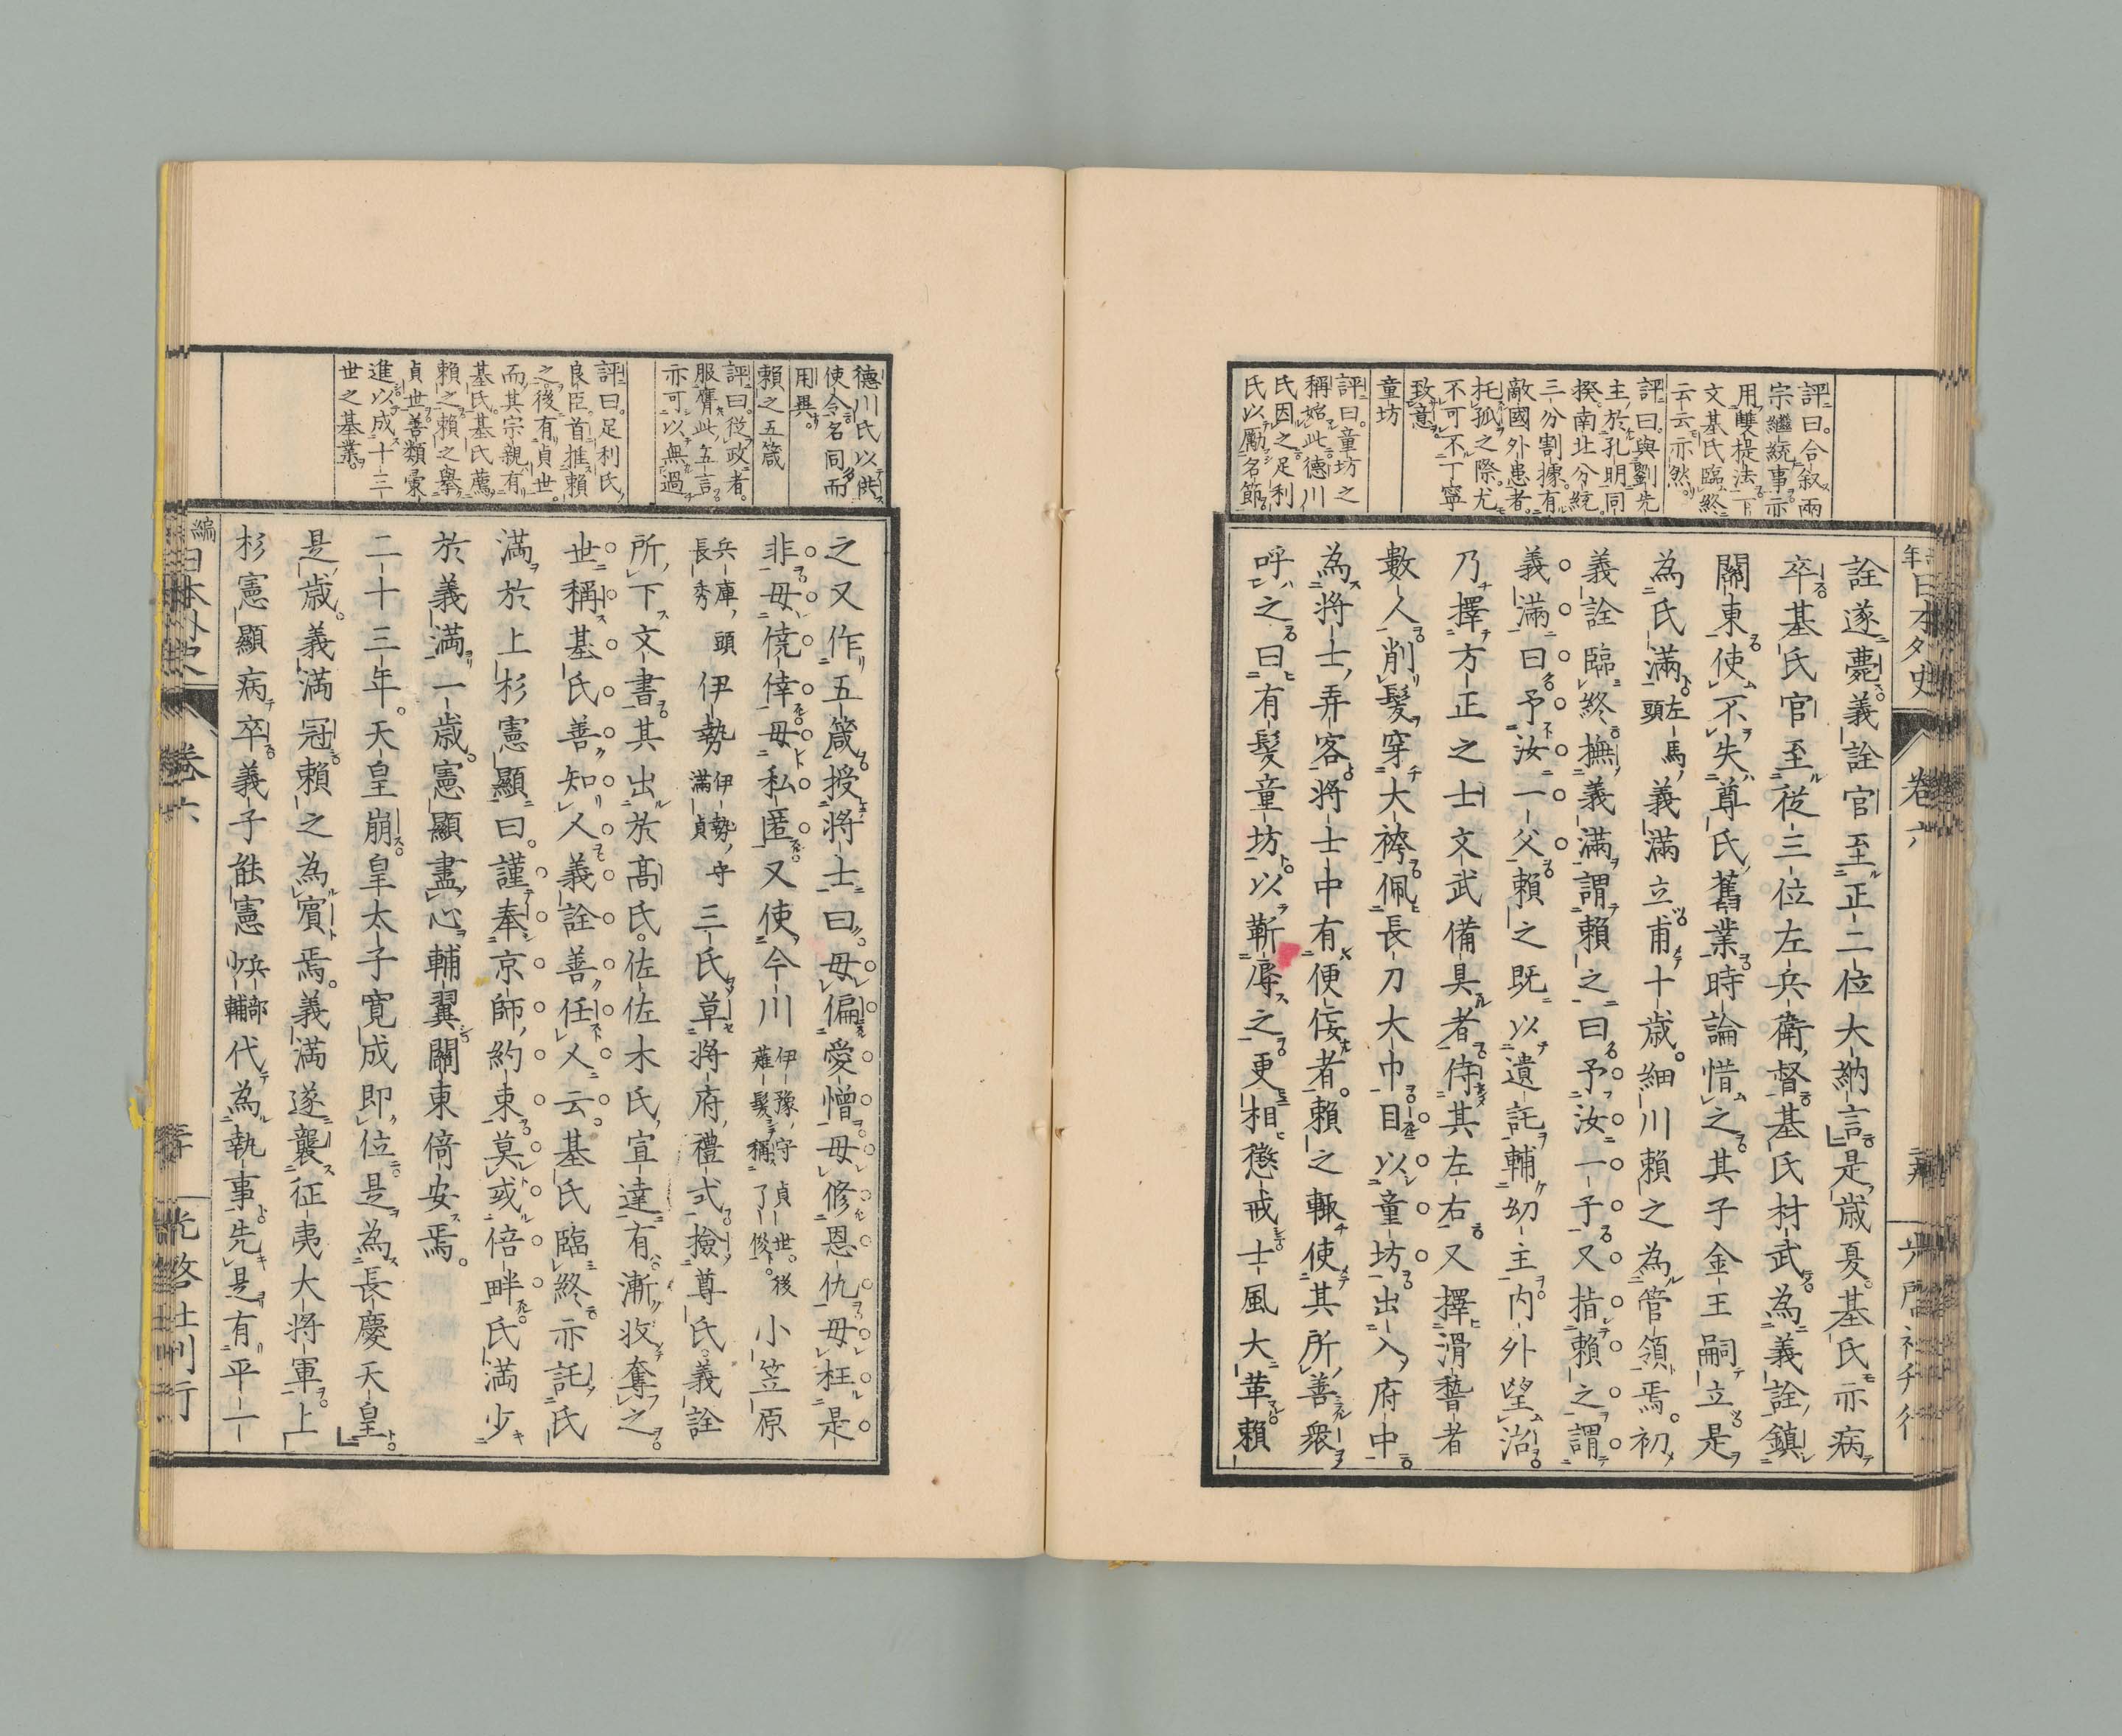 評曰。合叙兩
宗繼統事。亦
用雙提法。下
文基氏臨終
云云亦然。
評曰。與劉先
主於孔明同
揆。南北分統。
三分割據。有
敵國外患者。
托孤之際。尤
不可不丁寧
致意
童坊
評曰。童坊之
稱始此。德川
氏因之。足利
氏以勵名節。
日本外史
卷六
詮遂薨。義詮官至正二位大納言。是歲夏。基氏亦病
卒。基氏官至從三位左兵衛督。基氏材武。為義詮鎮
關東。使不失尊氏舊業。時論惜之。其子金王嗣立。是
為氏滿。左馬頭義滿立。甫十歲。細川賴之為管領焉。初
義詮臨終。撫義滿。謂賴之曰。予汝一子。又指賴之。謂
義滿曰。予汝一父。賴之既以遺託輔幼主。内外望治。
乃擇方正之士文武備具者。侍其左右。又擇滑稽者
數人。削髮穿大袴。佩長刀大巾。目以童坊。出入府中。
為將士弄客。將士中有便佞者。賴之輙使其所善衆
呼之曰。有髮童坊。以靳辱之。更相懲戒。士風大革。賴
德川氏以供
使令。名同而
用異。
賴之五箴
評曰。從政者。
服膺此五言。
亦可以無過
評曰。足利氏
良臣。首推賴
之。後有貞世。
而其宗親有
基氏。基氏薦
賴之。賴之擧
貞世。善類彙
進。以成十三
世之基業。
之又作五箴。授將士曰。毋偏愛憎。毋修恩仇。毋枉是
非。毋僥倖。毋私匿。又使今川伊豫守貞世。後薙髮稱了俊。小笠原
兵庫頭長秀伊勢伊勢守滿貞三氏草將府禮式。撿尊氏義詮
所下文書。其出於高氏。佐佐木氏。宜達有漸收奪之。
世稱。基氏善知人。義詮善任人云。基氏臨終。亦託氏
滿於上杉憲顯曰。謹奉京師約束。莫或倍畔。氏滿少
於義滿一歲。憲顯盡心輔翼。關東倚安焉。
二十三年。天皇崩。皇太子寛成即位。是為長慶天皇。
是歲。義滿冠。賴之為賓焉。義滿遂襲征夷大將軍。上
杉憲顯病卒。義子能憲兵部少輔代為執事。先是有平一
編日本外史
卷六
光啓社刊行